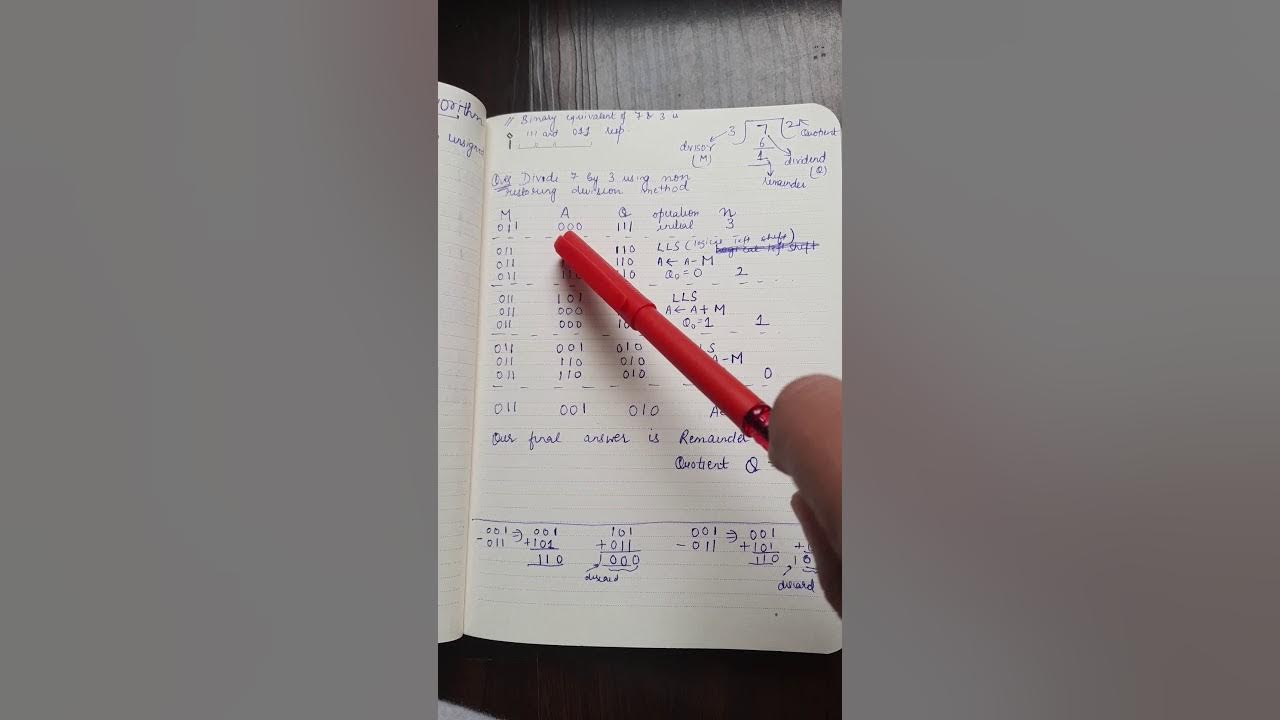 orithm
unsigne
// Binary equivalent of 7 & 3 is
111 and 011 resp.
3 7 2 Quotient
6
1
divisor
(M)
dividend
(Q)
remainder
Que Divide 7 by 3 using non
restoring division method
M A Q operation n
011 000 111 initial 3
011 110 LLS (logical left shift)
011 110 A ← A - M
011 110 110 Q₀ = 0 2
011 101 LLS
011 000 A ← A + M
011 000 Q₀ = 1 1
011 001 010
011 110 010 A-M
011 110 010 0
011 001 010
Our final answer is Remainder
Quotient Q
001 ⇒ 001 101 001 ⇒ 001
- 011 +101 +011 - 011 +101
110 1 000 110
discard discard